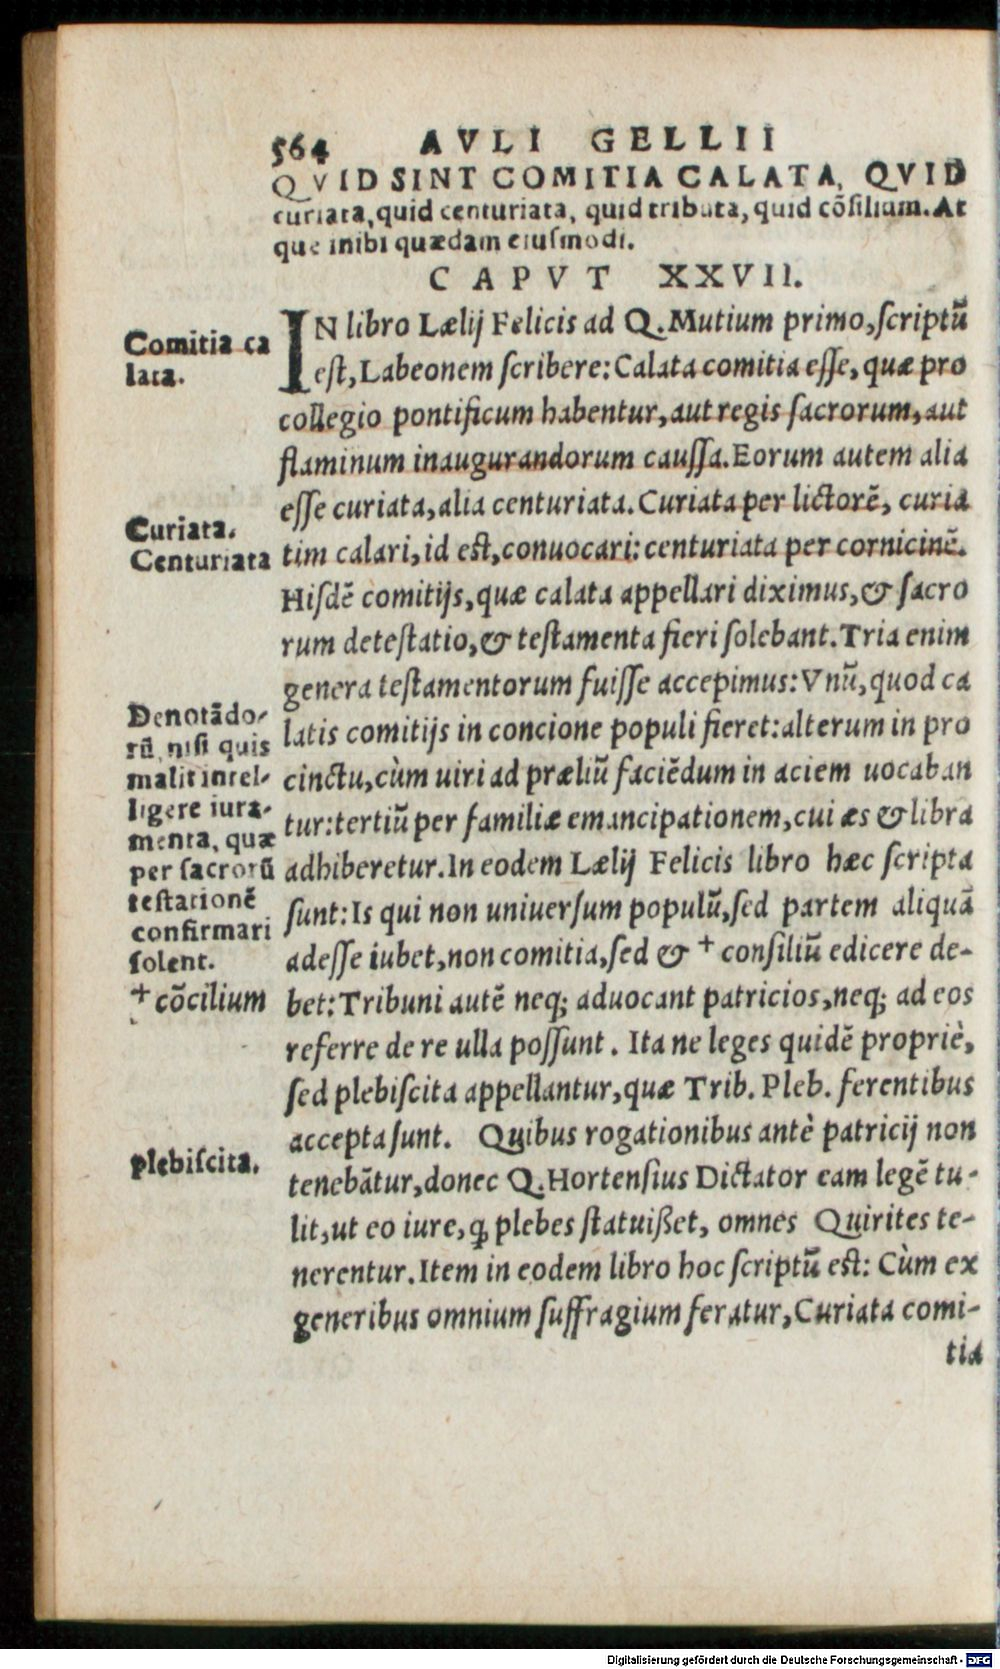 564 AVLI GELLII
QVID SINT COMITIA CALATA, QVID
curiata, quid centuriata, quid tributa, quid cõsilium. At
que inibi quædam eiusmodi.
CAPVT XXVII.
IN libro Lælij Felicis ad Q. Mutium primo, ſcriptũ
eſt, Labeonem ſcribere: Calata comitia eſſe, quæ pro
collegio pontificum habentur, aut regis ſacrorum, aut
flaminum inaugurandorum cauſſa. Eorum autem alia
eſſe curiata, alia centuriata. Curiata per lictorẽ, curia
tim calari, id eſt, conuocari: centuriata per cornicinẽ.
Hiſdẽ comitijs, quæ calata appellari diximus, & ſacro
rum deteſtatio, & teſtamenta fieri ſolebant. Tria enim
genera teſtamentorum fuiſſe accepimus: Vnũ, quod ca
latis comitijs in concione populi fieret: alterum in pro
cinctu, cùm uiri ad præliũ faciẽdum in aciem uocaban
tur: tertiũ per familiæ emancipationem, cui æs & libra
adhiberetur. In eodem Lælij Felicis libro hæc ſcripta
ſunt: Is qui non uniuerſum populũ, ſed partem aliquã
adeſſe iubet, non comitia, ſed & + conſiliũ edicere de-
bet: Tribuni autẽ neq; aduocant patricios, neq; ad eos
referre de re ulla poſſunt. Ita ne leges quidẽ propriè,
ſed plebiſcita appellantur, quæ Trib. Pleb. ferentibus
accepta ſunt. Quibus rogationibus antè patricij non
tenebãtur, donec Q. Hortenſius Dictator eam legẽ tu-
lit, ut eo iure, ꝗ plebes ſtatuißet, omnes Quirites te-
nerentur. Item in eodem libro hoc ſcriptũ eſt: Cùm ex
generibus omnium ſuffragium feratur, Curiata comi-
tia
Comitia ca
lata.
Curiata.
Centuriata
Denotãdo-
rũ, niſi quis
malit intel-
ligere iura-
menta, quæ
per ſacrorũ
teſtationẽ
confirmari
ſolent.
+ cõcilium
plebiſcita.
Digitalisierung gefördert durch die Deutsche Forschungsgemeinschaft - DFG